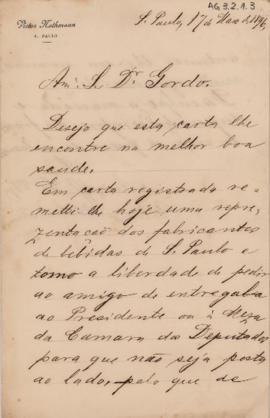 AG3.2.1.3
Victor Nothmann
S. PAULO
S. Paulo, 17 de Maio de 1896
Am.º Sr. Dr. Gordo.
Desejo que esta carta lhe
encontre na melhor boa
saude.
Em carta registrada re-
metti lhe hoje uma repre-
zentação dos fabricantes
de bebidas de S. Paulo e
tomo a liberdade de pedir
ao amigo de entregal-a
ao Presidente ou à Meza
da Camara dos Deputados
para que não seja posta
ao lado, pelo que de